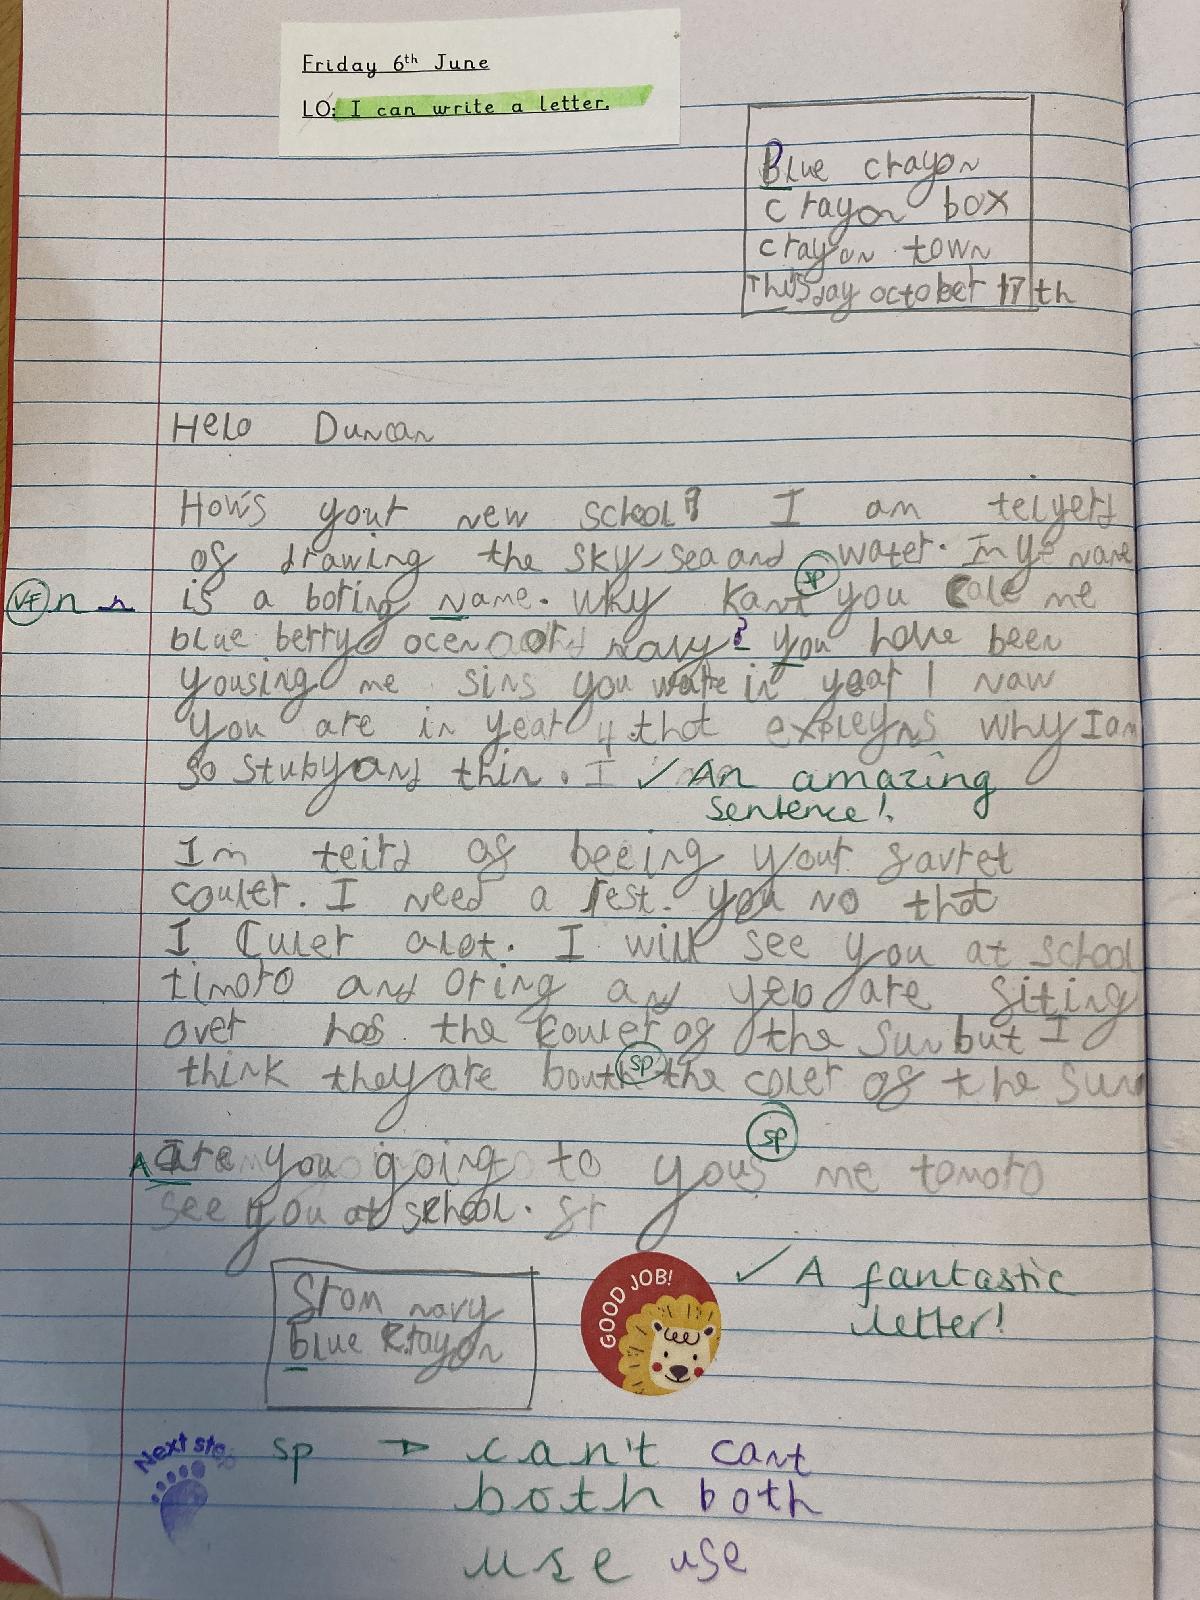 Friday 6th June
LO: I can write a letter.
Blue crayon
crayon box
crayon town
Thusday october 17th
Helo Duncan
How's your new school? I am teiyerd
of drawing the sky sea and water. my name
VF n n is a boring name. Why kant sp you cale me
blue berry ocen or navy? you have been
yousing me sins you ware in year 1 naw
you are in year 4 that expleyns why I am
so stuby and thin. I ✓ An amazing
sentence!
Im teird of beeing your favret
couler. I need a rest. you no that
I Culer alot. I will see you at school
timoro and oring and yelo are siting
over has the kouler of the sun but I
think they are bouth sp the coler of the sun
sp
A are you going to yous me tomoro
see you at school. fr
from navy
blue krayon
GOOD JOB!
✓ A fantastic
letter!
Next step
sp → can't cant
both both
use use